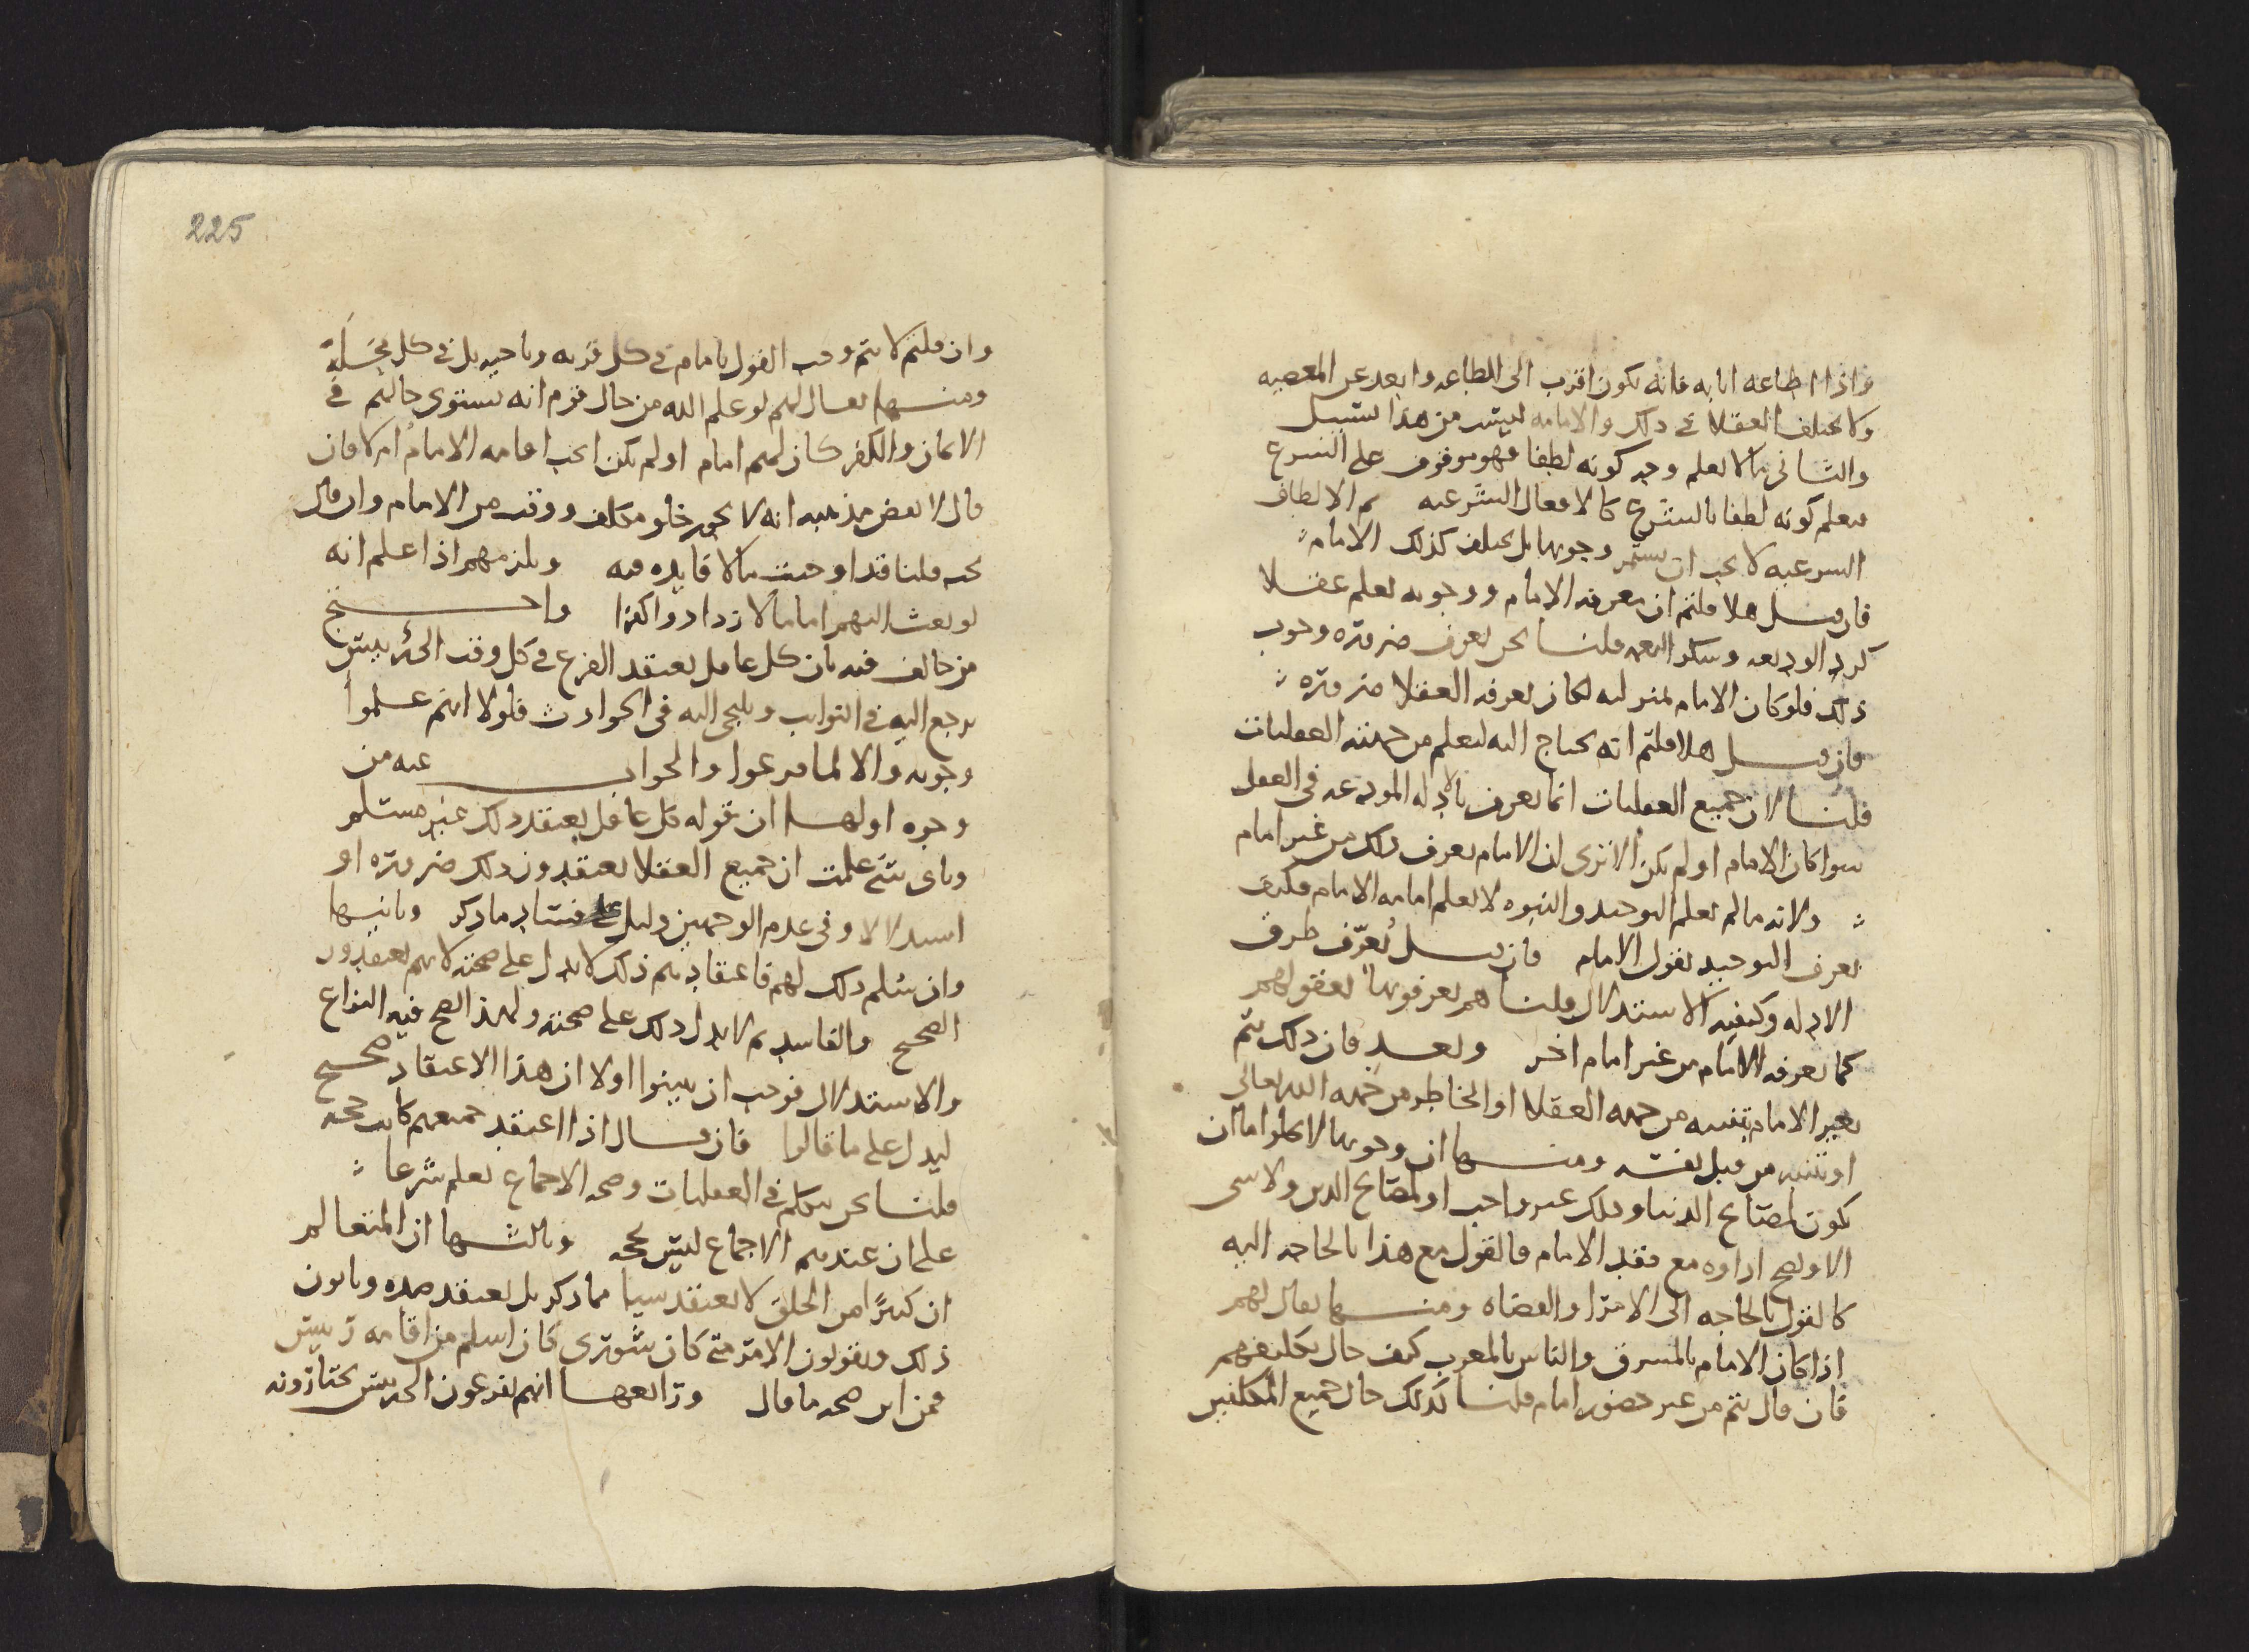 واذا اطاعه اثابه فانه يكون اقرب الى الطاعه وابعد عن المعصيه
ولا يختلف العقلا في ذلك والامامه ليس من هذا بسبيل
والثاني ما لا يعلم وجه كونه لطفا فهو موقوف على الشرع
فيعلم كونه لطفا بالشرع كالافعال الشرعيه ثم الالطاف
الشرعيه لا يجب ان يستمر وجوبها بل يختلف كذلك الامام
فان قيل هلا قلتم ان معرفه الامام ووجوبه يعلم عقلا
كرد الوديعه وشكر النعمه قلنا نحن نعرف ضروره وجوب
ذلك فلو كان الامام بمنزلته لكان يعرفه العقلا ضروره
فان قيل هلا قلتم انه يحتاج اليه ليعلم من جهته العقليات
قلنا لان جميع العقليات انما يعرف بالادله المودعه في العقل
سوا كان الامام او لم يكن الا ترى ان الامام يعرف ذلك من غير امام
ولانه ما لم يعلم التوحيد والنبوه لا يعلم امامه الامام فكيف
يعرف التوحيد بقول الامام فان قيل يُعرّف طرق
الادله وكيفيه الاستدلال قلنا هم يعرفونها بعقولهم
كما يعرفه الامام من غير امام اخر وبعد فان ذلك يتم
بغير الامام بتنبيه من جهه العقلا او الخاطر من جهه الله تعالى
او تنبيه من قبل نفسه ومنها ان وجوبها لا يخلوا اما ان
يكون لمصالح الدنيا وذلك غير واجب او لمصالح الدين ولا شي
الا ويصح اداوه مع فقد الامام فالقول مع هذا بالحاجه اليه
كالقول بالحاجه الى الامرا والقضاه ومنها يقال لهم
اذا كان الامام بالمشرق والناس بالمغرب كيف حال تكليفهم
فان قال يتم من غير حضور امام قلنا كذلك حال جميع المكلفين
225
وان قلتم لا يتم وجب القول بامام في كل قريه وناحيه بل في كل محَلّة
ومنها يقال لهم لو علم الله من حال قوم انه يستوي حالهم في
الايمان والكفر كان لهم امام او لم يكن ايجب اقامه الامام ام لا فان
قال لا نقض مذهبه انه لا يجوز خلو مكلف ووقت من الامام وان قال
يجب قلنا قد اوجبت ما لا فايده فيه ويلزمهم اذا علم انه
لو بعث اليهم اماما لازدادوا كفرا واحتج
من خالف فيه بان كل عاقل يعتقد الفزع في كل وقت الى رييس
يرجع اليه في النوايب ويلجى اليه في الحوادث فلولا انهم علموا
وجوبه والا لما فزعوا والجواب عنه من
وجوه اولها ان قوله كل عاقل يعتقد ذلك غير مسلم
وباي شي علمت ان جميع العقلا يعتقدون ذلك ضروره او
استدلالا وفي عدم الوجهين دليل على فساد ما ذكر وثانيها
وان سُلم ذلك لهم فاعتقادهم ذلك لا يدل على صحته لانهم يعتقدون
الصحيح والفاسد ثم لا يدل ذلك على صحته ولهذا لصح فيه النزاع
والاستدلال فوجب ان يبينوا اولا ان هذا الاعتقاد صحيح
ليدل على ما قالوا فان قال اذا اعتقد جميعهم كانت حجه
قلنا نحن نتكلم في العقليات وصحه الاجماع يعلم شرعا
على ان عندهم الاجماع ليس بحجه وثالثها ان المتعالم
ان كثيرًا من الخلق لا يعتقد شيا مما ذكر بل يعتقد ضده ويابون
ذلك ويقولون الامر متى كان شورى كان اسلم من اقامه رييس
فمن اين صحه ما قال ورابعها انهم يفزعون الى رييس يختارونه